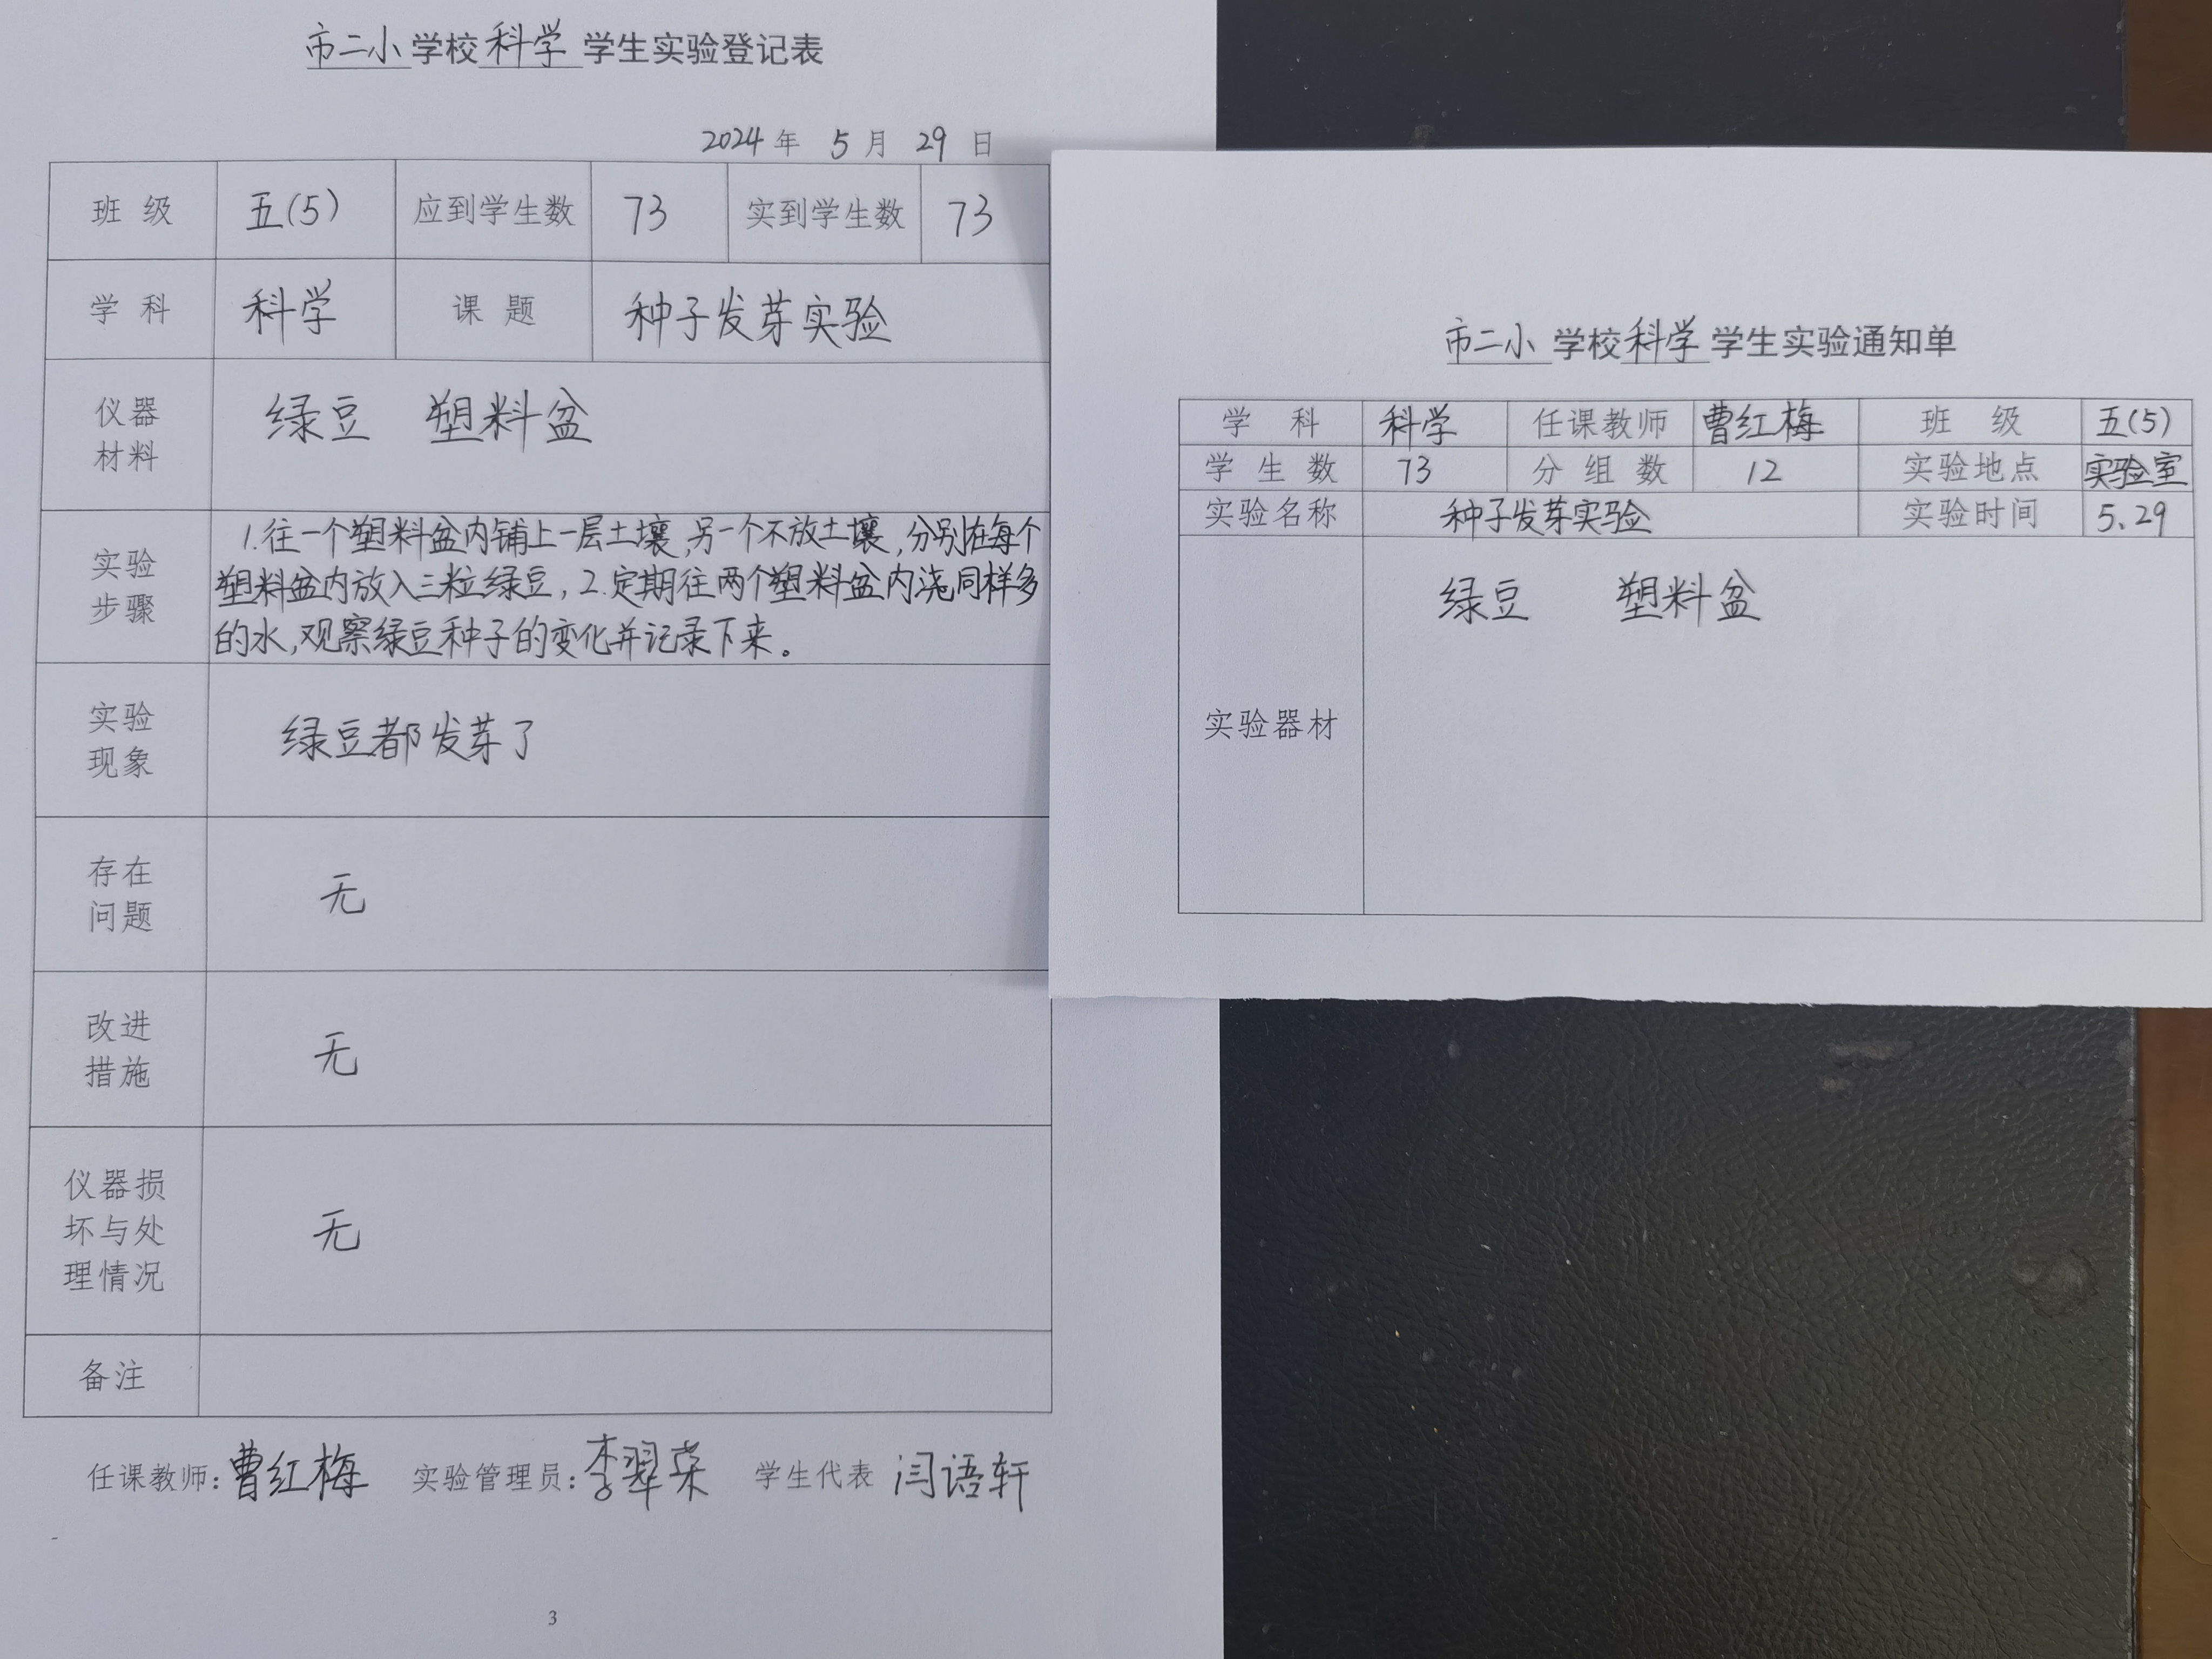 市二小学校科学学生实验登记表
2024年 5月 29日
班级 五(5) 应到学生数 73 实到学生数 73
学科 科学 课题 种子发芽实验
仪器
材料
绿豆 塑料盆
实验
步骤
1.往一个塑料盆内铺上一层土壤,另一个不放土壤,分别在每个
塑料盆内放入三粒绿豆,2.定期往两个塑料盆内浇同样多
的水,观察绿豆种子的变化并记录下来。
实验
现象
绿豆都发芽了
存在
问题
无
改进
措施
无
仪器损
坏与处
理情况
无
备注
任课教师:曹红梅 实验管理员:李翠荣 学生代表 闫语轩
3
市二小学校科学学生实验通知单
学科 科学 任课教师 曹红梅 班级 五(5)
学生数 73 分组数 12 实验地点 实验室
实验名称 种子发芽实验 实验时间 5.29
实验器材
绿豆 塑料盆